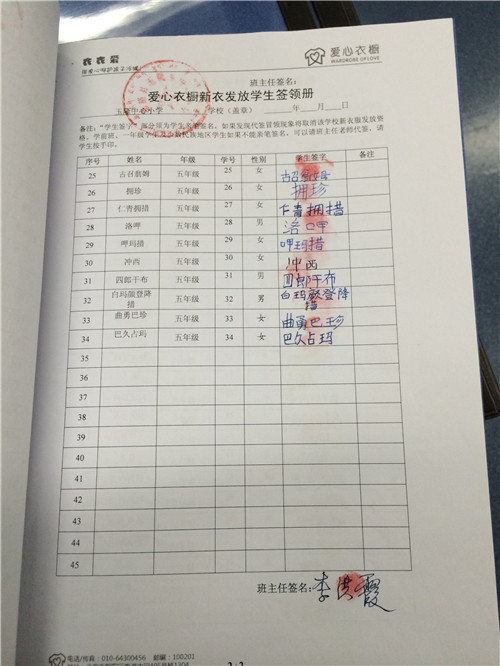 衣衣爱
爱心衣橱
WARDROBE OF LOVE
班主任签名：
爱心衣橱新衣发放学生签领册
中心小学 学校（盖章） 年 月 日
备注：“学生签字”部分须为学生亲笔签名，如果发现代签冒领现象将取消该学校新衣服发放资
格，学前班、一年级学生及少数民族地区学生如果不能亲笔签名，可以请班主任老师代签，请
学生按手印。
序号 姓名 年级 学号 性别 学生签字 备注
25 古召翁姆 五年级 25 女
26 拥珍 五年级 26 女 拥珍
27 仁青拥措 五年级 27 女 仁青拥措
28 洛呷 五年级 28 男 洛呷
29 呷玛措 五年级 29 女 呷玛措
30 冲西 五年级 30 女 冲西
31 四郎干布 五年级 31 男 四郎干布
32 白玛颜登降措 五年级 32 男 白玛颜登降措
33 曲勇巴珍 五年级 33 女 曲勇巴珍
34 巴久占玛 五年级 34 女 巴久占玛
35
36
37
38
39
40
41
42
43
44
45
班主任签名：李洪霞
电话/传真：010-64300456 邮编：100201